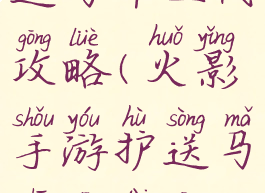 gōng lüè huǒ yǐng
攻略(火影
shǒu yóu hù sòng mǎ
手游护送马